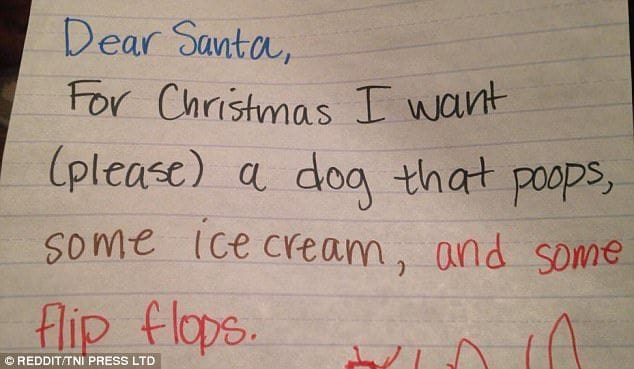 Dear Santa,
For Christmas I want
(please) a dog that poops,
some ice cream, and some
flip flops.
© REDDIT/TNI PRESS LTD